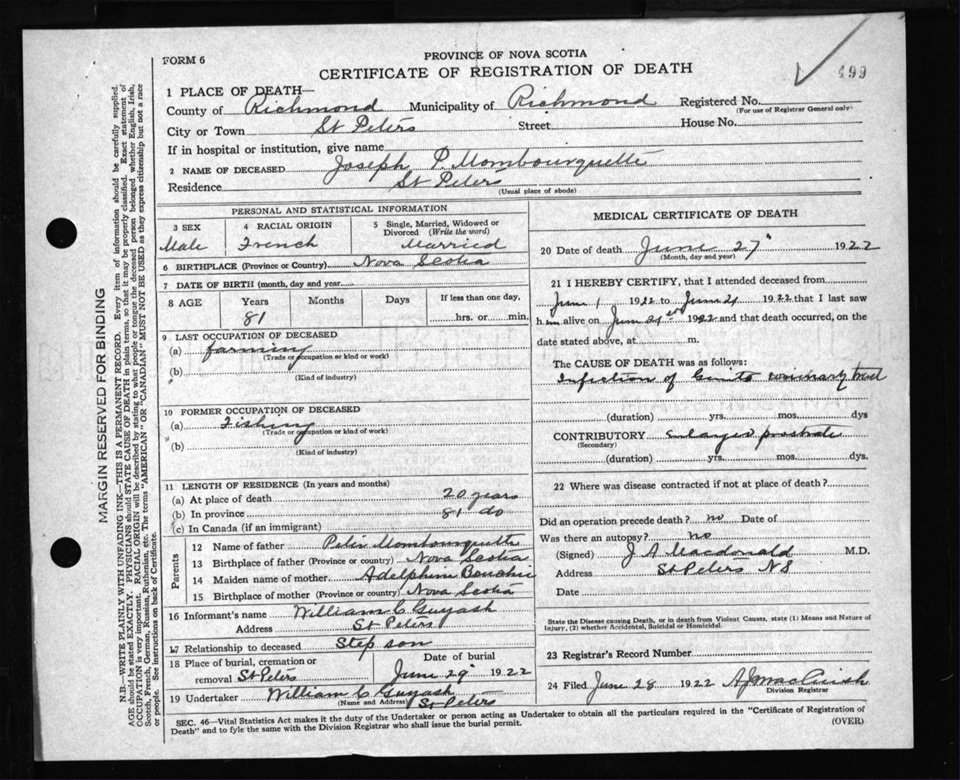 499
FORM 6
PROVINCE OF NOVA SCOTIA
CERTIFICATE OF REGISTRATION OF DEATH
1 PLACE OF DEATH—
County of Richmond Municipality of Richmond Registered No.
(For use of Registrar General only)
City or Town St Peters Street House No.
If in hospital or institution, give name
2 NAME OF DECEASED Joseph P. Mombourquette
Residence St Peters
(Usual place of abode)
PERSONAL AND STATISTICAL INFORMATION
3 SEX 4 RACIAL ORIGIN 5 Single, Married, Widowed or Divorced (Write the word)
Male French Married
6 BIRTHPLACE (Province or Country) Nova Scotia
7 DATE OF BIRTH (month, day and year)
8 AGE Years Months Days If less than one day,
81 hrs. or min.
9 LAST OCCUPATION OF DECEASED
(a) farming
(Trade or occupation or kind or work)
(b)
(Kind of industry)
10 FORMER OCCUPATION OF DECEASED
(a) Fishing
(Trade or occupation or kind or work)
(b)
(Kind of industry)
11 LENGTH OF RESIDENCE (In years and months)
(a) At place of death 20 years
(b) In province 81 do
(c) In Canada (if an immigrant)
Parents
12 Name of father Peter Mombourquette
13 Birthplace of father (Province or country) Nova Scotia
14 Maiden name of mother Adelphine
15 Birthplace of mother (Province or country) Nova Scotia
16 Informant's name William C Guyash
Address St Peters
17 Relationship to deceased Step son
18 Place of burial, cremation or removal St Peters
Date of burial
June 29" 1922
19 Undertaker William C Guyash
(Name and Address) St Peters
MEDICAL CERTIFICATE OF DEATH
20 Date of death June 27" 1922
(Month, day and year)
21 I HEREBY CERTIFY, that I attended deceased from
June 1 1922 to June 21 1922 that I last saw
him alive on June 21st 1922 and that death occurred, on the
date stated above, at m.
The CAUSE OF DEATH was as follows:
Infection of Genito urinary tract
(duration) yrs. mos. dys
CONTRIBUTORY enlarged prostrate
(Secondary)
(duration) yrs. mos. dys.
22 Where was disease contracted if not at place of death?
Did an operation precede death? no Date of
Was there an autopsy? no
(Signed) J A Macdonald M.D.
Address St Peters N S
Date
State the Disease causing Death, or in death from Violent Causes, state (1) Means and Nature of
Injury, (2) whether Accidental, Suicidal or Homicidal.
23 Registrar's Record Number
24 Filed June 28 1922
Division Registrar
SEC. 46—Vital Statistics Act makes it the duty of the Undertaker or person acting as Undertaker to obtain all the particulars required in the "Certificate of Registration of
Death" and to fyle the same with the Division Registrar who shall issue the burial permit.
(OVER)
MARGIN RESERVED FOR BINDING
N.B.—WRITE PLAINLY WITH UNFADING INK—THIS IS A PERMANENT RECORD. Every item of information should be carefully supplied.
AGE should be stated EXACTLY. PHYSICIANS should STATE CAUSE OF DEATH in plain terms, so that it may be properly classified. Exact statement of
OCCUPATION is very important. RACIAL ORIGIN will be described by stating to what people or tongue the deceased person belonged whether English, Irish,
Scotch, French, German, Russian, Ruthenian, etc. The terms "AMERICAN" OR "CANADIAN" MUST NOT BE USED as they express citizenship but not a race
or people. See instructions on back of Certificate.